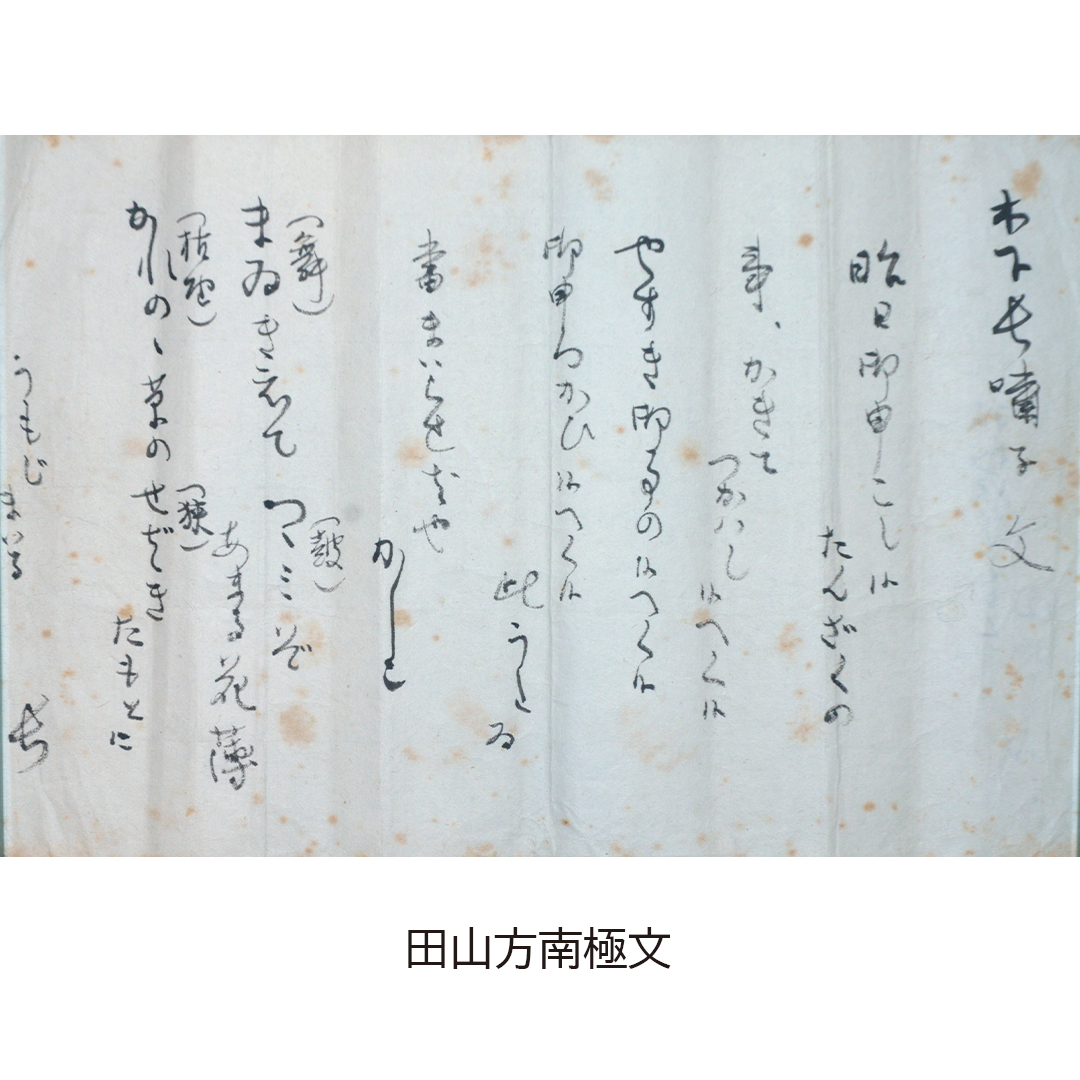 木下長嘯子 文
昨日御申こし候
たんざくの
事、かきて
つかハし
候へく候
やすき御事の候へく候
御申つかひ候へく候
此うた
書まいらせ
かしこ
まゐきえて
(舞)
つゝミど
(鼓)
あまる花薄
かれのゝ草の
せばき
(狭)
たもとに
うもじ
まいる
長
田山方南極文